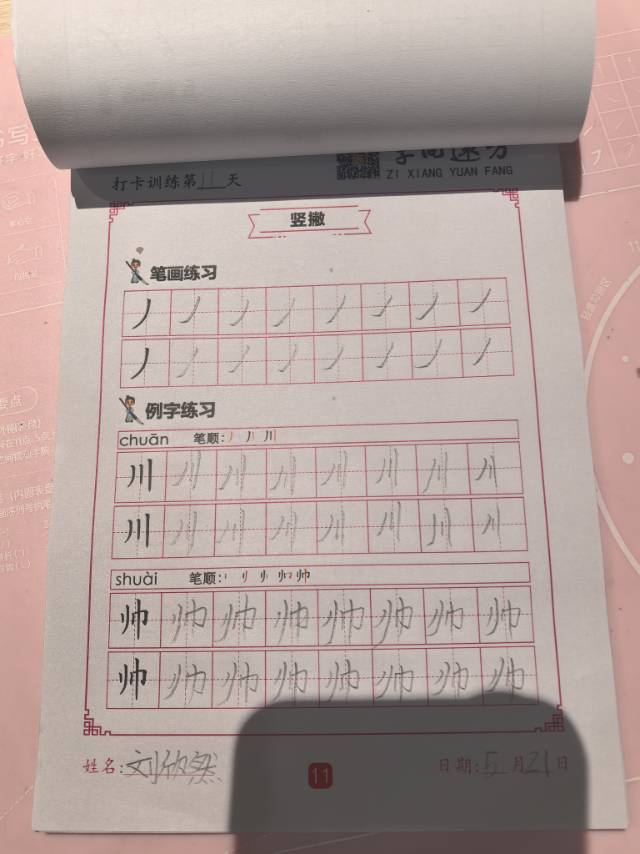 字向速方
ZI XIANG YUAN FANG
打卡训练第11天
竖撇
笔画练习
丿 丿 丿 丿 丿 丿 丿 丿
丿 丿 丿 丿 丿 丿 丿 丿
例字练习
chuān 笔顺: 丿 丿丨 川
川 川 川 川 川 川 川 川
川 川 川 川 川 川 川 川
shuài 笔顺:
帅 帅 帅 帅 帅 帅 帅 帅
帅 帅 帅 帅 帅 帅 帅 帅
姓名:刘欣然
11
日期:5月21日